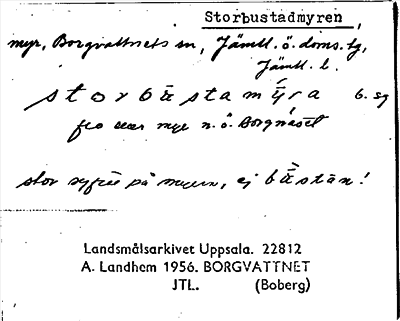 Storbustadmyren,
myr, Borgvattnets sn, Jämtl. ö. doms. tg,
Jämtl. l.
storbùstamý̀ra b. sg
myr n. ö. Borgnäset
stor på myren, ej bùstän!
Landsmålsarkivet Uppsala. 22812
A. Landhem 1956. BORGVATTNET
JTL. (Boberg)